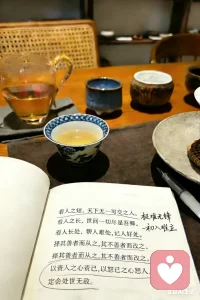 看人之短，天下无一可交之人，
看人之长，世间一切尽是吾师。
看人长处，帮人难处，记人好处，
择其善者而从之，其不善者而改之。
择其善者而从之，其不善者而改之。
以责人之心责己，以恕己之心恕人，
定会处世无敌。